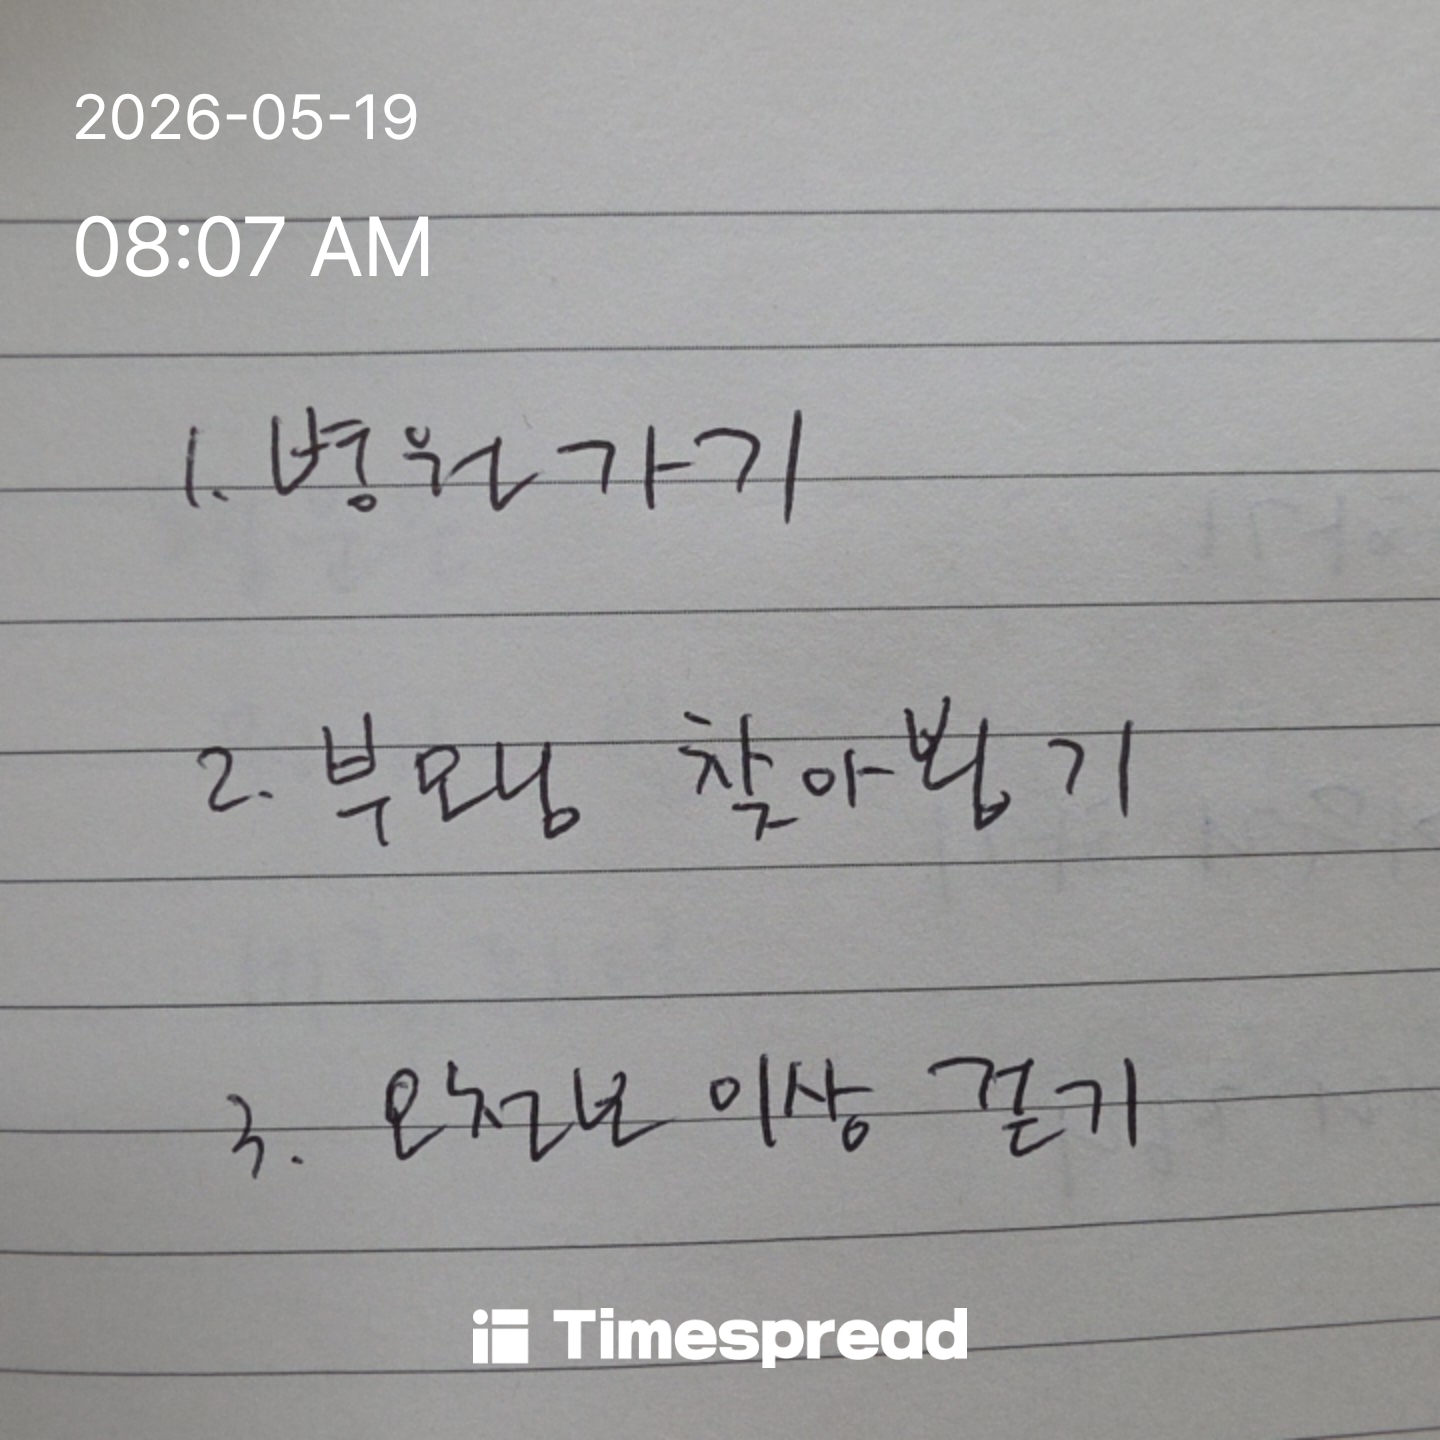 2026-05-19
08:07 AM
1. 병원가기
2. 부모님 찾아뵙기
3. 오천보 이상 걷기
Timespread